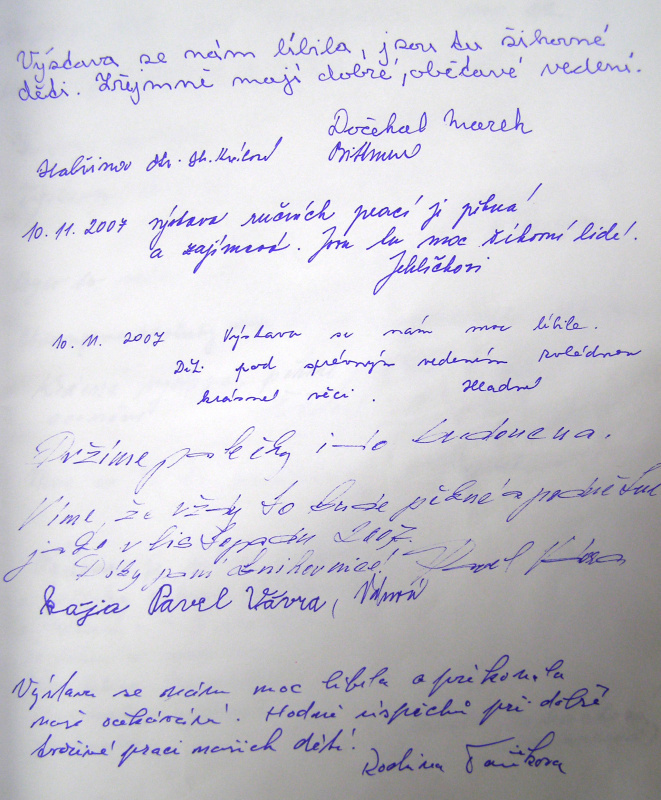 Výstava se nám líbila, jsou tu šikovné
děti. Zřejmně mají dobré, obětavé vedení.
Dočekal Marek
10.11.2007 výstava ručních prací je pěkná!
a zajímavá. Jsou tu moc šikovní lidé!
Jehličkovi
10. 11. 2007 Výstava se nám moc líbila.
Děti pod správným vedením zvládnou
krásné věci.
Držíme palečky i do budoucna.
Víme, že vždy to bude pěkné a podnětné
jako v listopadu 2007.
Díky paní knihovnice! Pavel
Kája Pavel Vávra,
Výstava se nám moc líbila a překonala
naše očekávání. Hodně úspěchů při dobré
tvořivé práci našich dětí!
Rodina